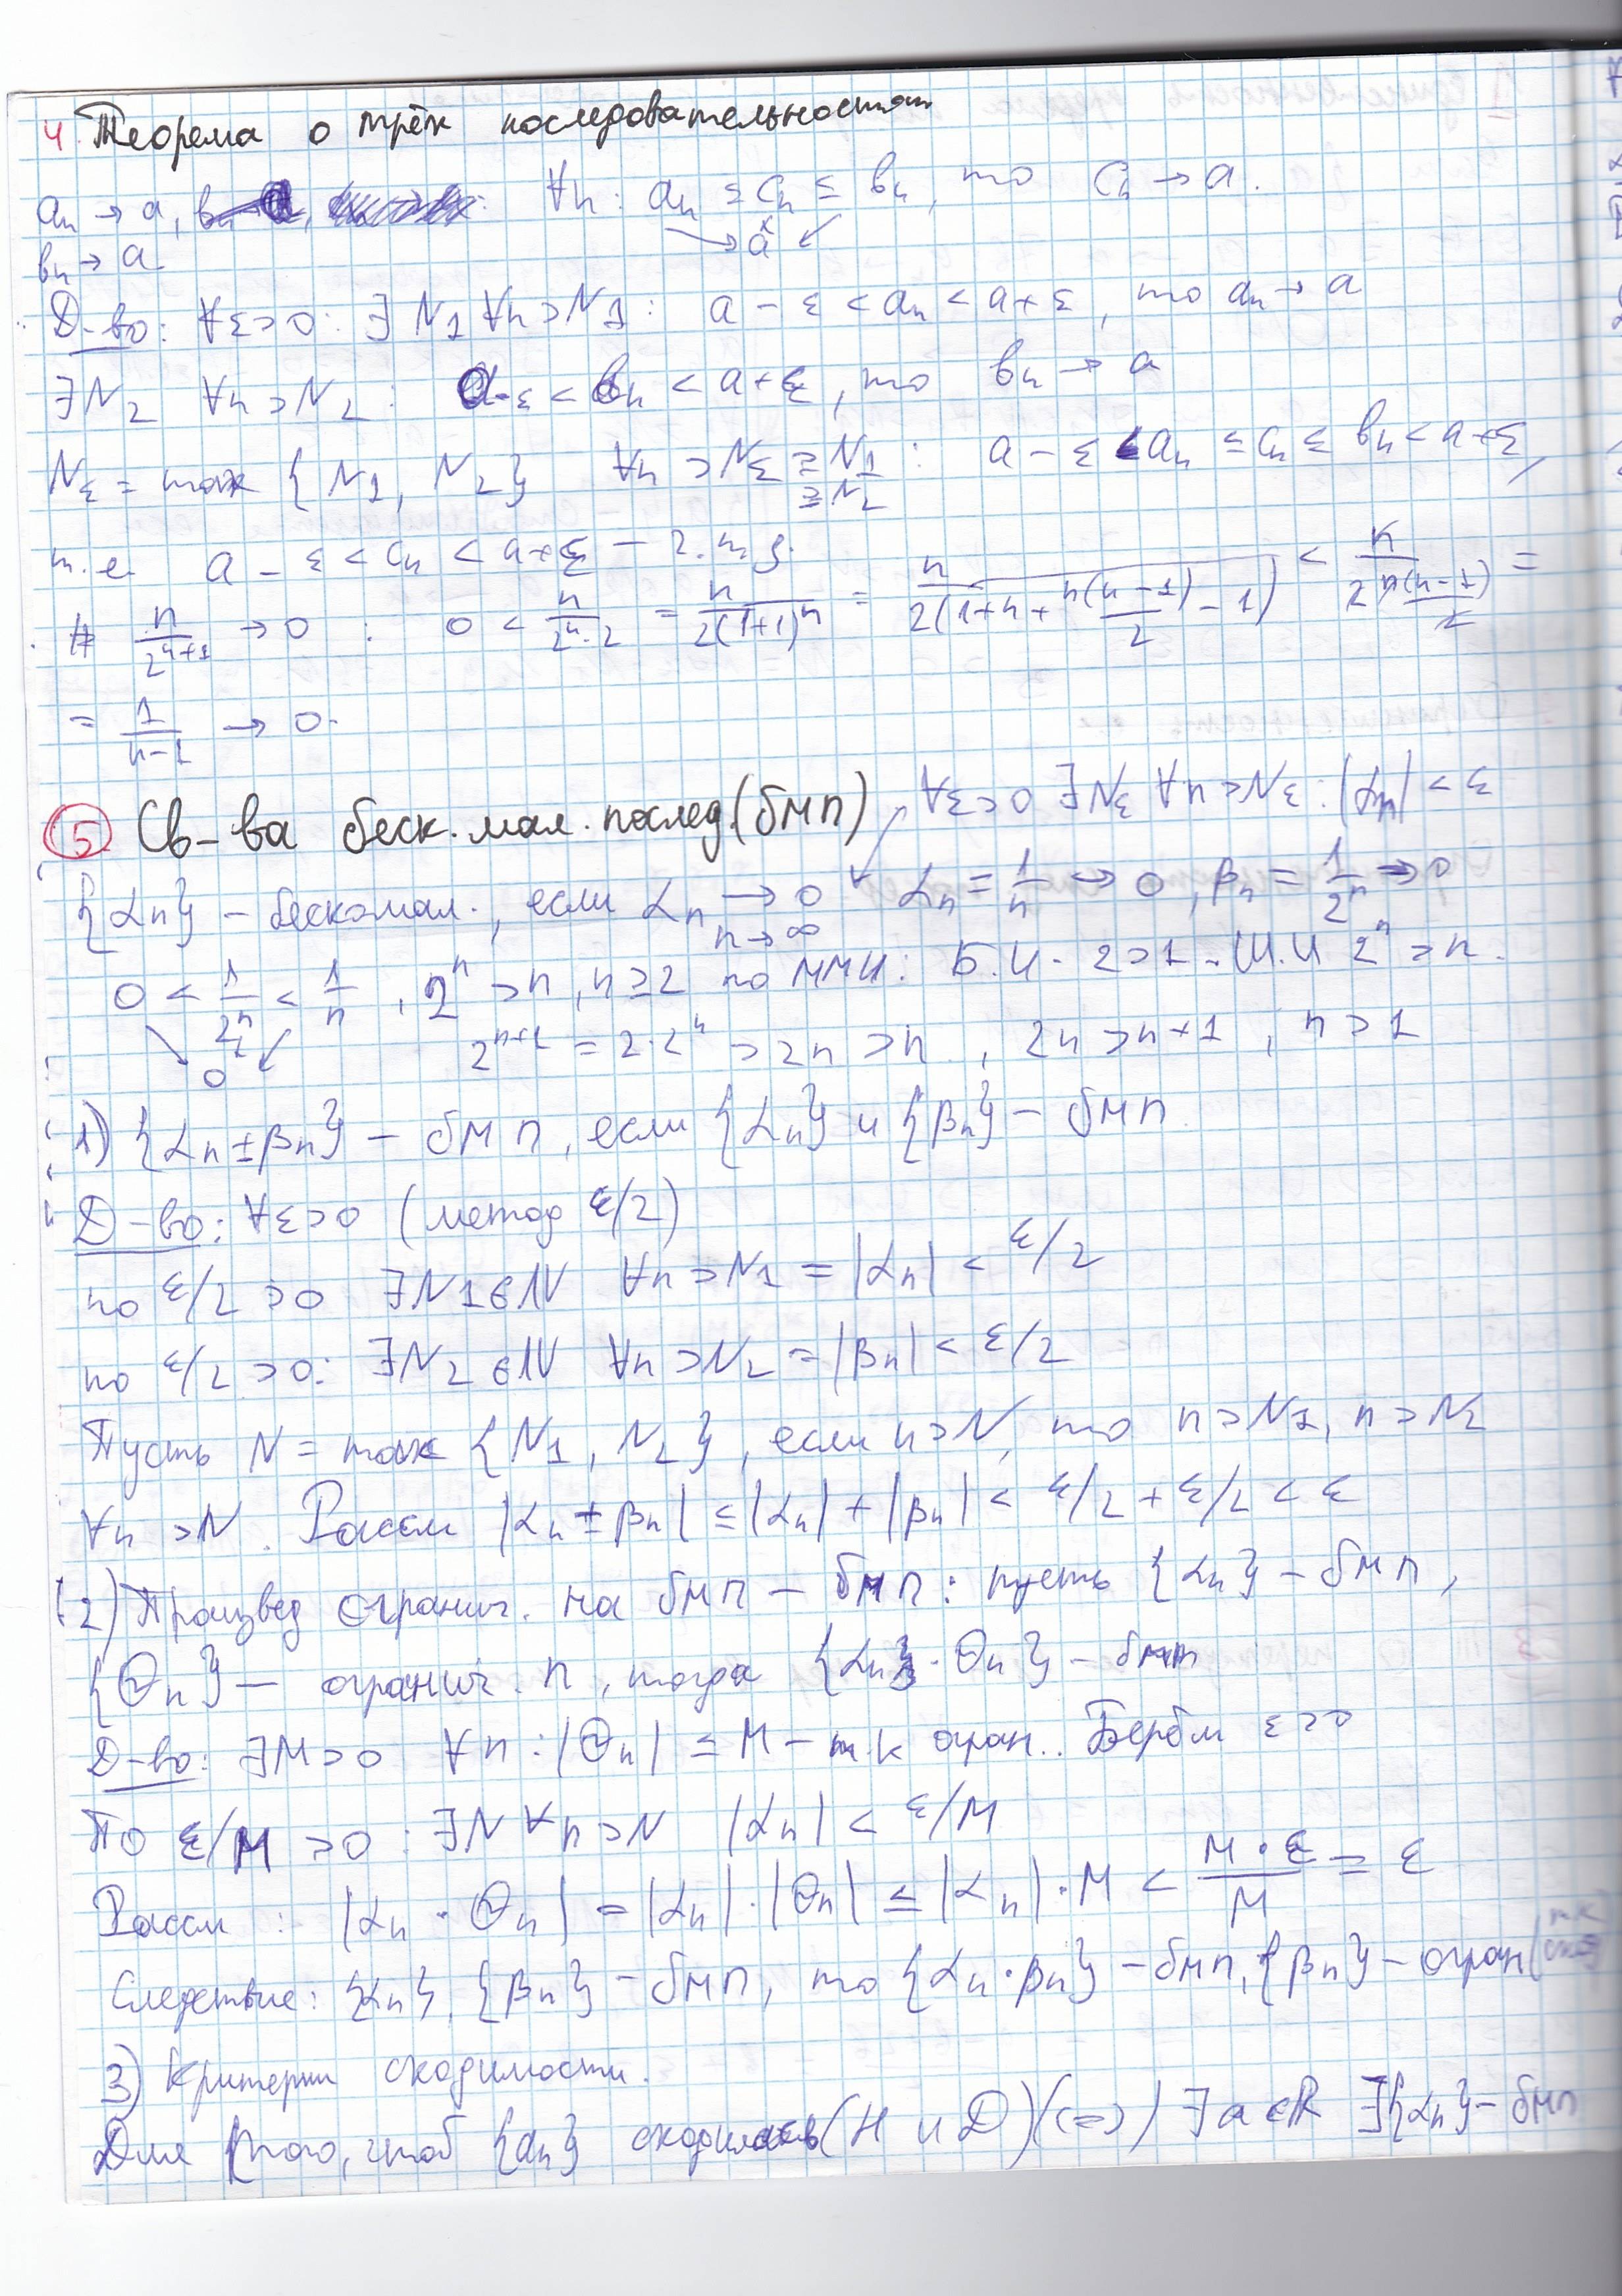 4. Теорема о трёх последовательностях
aₙ → a, ∀n: aₙ ≤ cₙ ≤ bₙ, то cₙ → a.
bₙ → a. → a ↙
Д-во: ∀ε>0: ∃ N₁ ∀n>N₁: a − ε < aₙ < a+ε, то aₙ → a
∃N₂ ∀n>N₂: a−ε < bₙ < a+ε, то bₙ → a
N₃ = max {N₁, N₂} ∀n > N₃ ≥ N₁ : a − ε < aₙ ≤ cₙ ≤ bₙ < a+ε,
≥ N₂
т.е. a − ε < cₙ < a+ε − ч.т.д.
# n/2ⁿ⁺¹ → 0 : 0 < n/(2ⁿ·2) = n/(2(1+1)ⁿ) = n/(2(1+n+n(n−1)/2 − 1)) < n/(2 n(n−1)/2) =
= 1/(n−1) → 0.
5 Св-ва беск.мал.послед.(бмп) ∀ε>0 ∃Nε ∀n>Nε: |αₙ| < ε
{αₙ} − бескомал., если αₙ → 0 αₙ = 1/n → 0, βₙ = 1/2ⁿ → 0
n→∞
0 < 1/2ⁿ < 1/n , 2ⁿ > n, n ≥ 2 по ММИ: Б.И. 2>1. Ш.И 2ⁿ > n.
↘ 0 ↙ 2ⁿ⁺¹ = 2·2ⁿ > 2n > n , 2n > n+1 , n > 1
1) {αₙ ± βₙ} − бмп, если {αₙ} и {βₙ} − бмп
Д-во: ∀ε>0 (метод ε/2)
по ε/2 > 0 ∃N₁∈ℕ ∀n > N₁ = |αₙ| < ε/2
по ε/2 > 0: ∃N₂∈ℕ ∀n > N₂ = |βₙ| < ε/2
Пусть N = max {N₁, N₂}, если n > N, то n > N₁, n > N₂
∀n > N. Рассм |αₙ ± βₙ| ≤ |αₙ| + |βₙ| < ε/2 + ε/2 < ε
2) Произвед огранич. на бмп − бмп: пусть {αₙ} − бмп,
{Θₙ} − огранич. п, тогда {αₙ · Θₙ} − бмп
Д-во: ∃M>0 ∀n : |Θₙ| ≤ M − т.к огран.. Берём ε>0
По ε/M > 0 : ∃N ∀n>N |αₙ| < ε/M
Рассм : |αₙ · Θₙ| = |αₙ|·|Θₙ| ≤ |αₙ|·M < M·ε/M = ε
Следствие: {αₙ}, {βₙ} − бмп, то {αₙ·βₙ} − бмп, {βₙ} − огран (т.к
3) Критерии сходимости.
Для того, чтоб {aₙ} сходилась (Н и Д) (<=>) ∃ a∈ℝ ∃{αₙ} − бмп